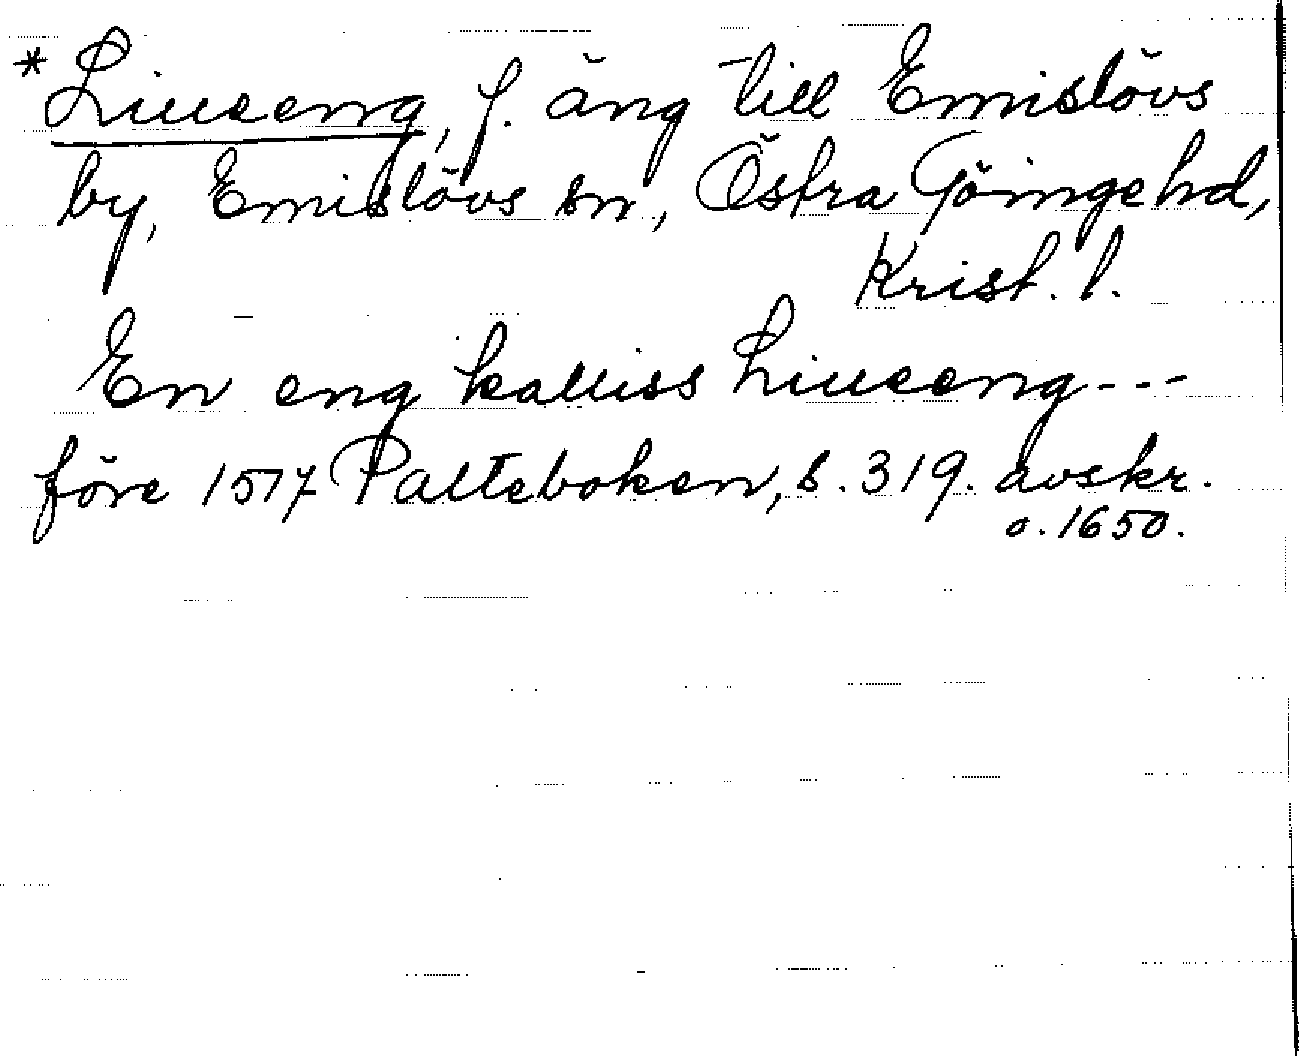 * Liuseng, f. äng till Emislövs
by, Emislövs sn, Östra Göinge hd,
Krist. l.
En eng kalliss Liuseng---
före 1517 Palteboken, s. 319. avskr.
o. 1650.